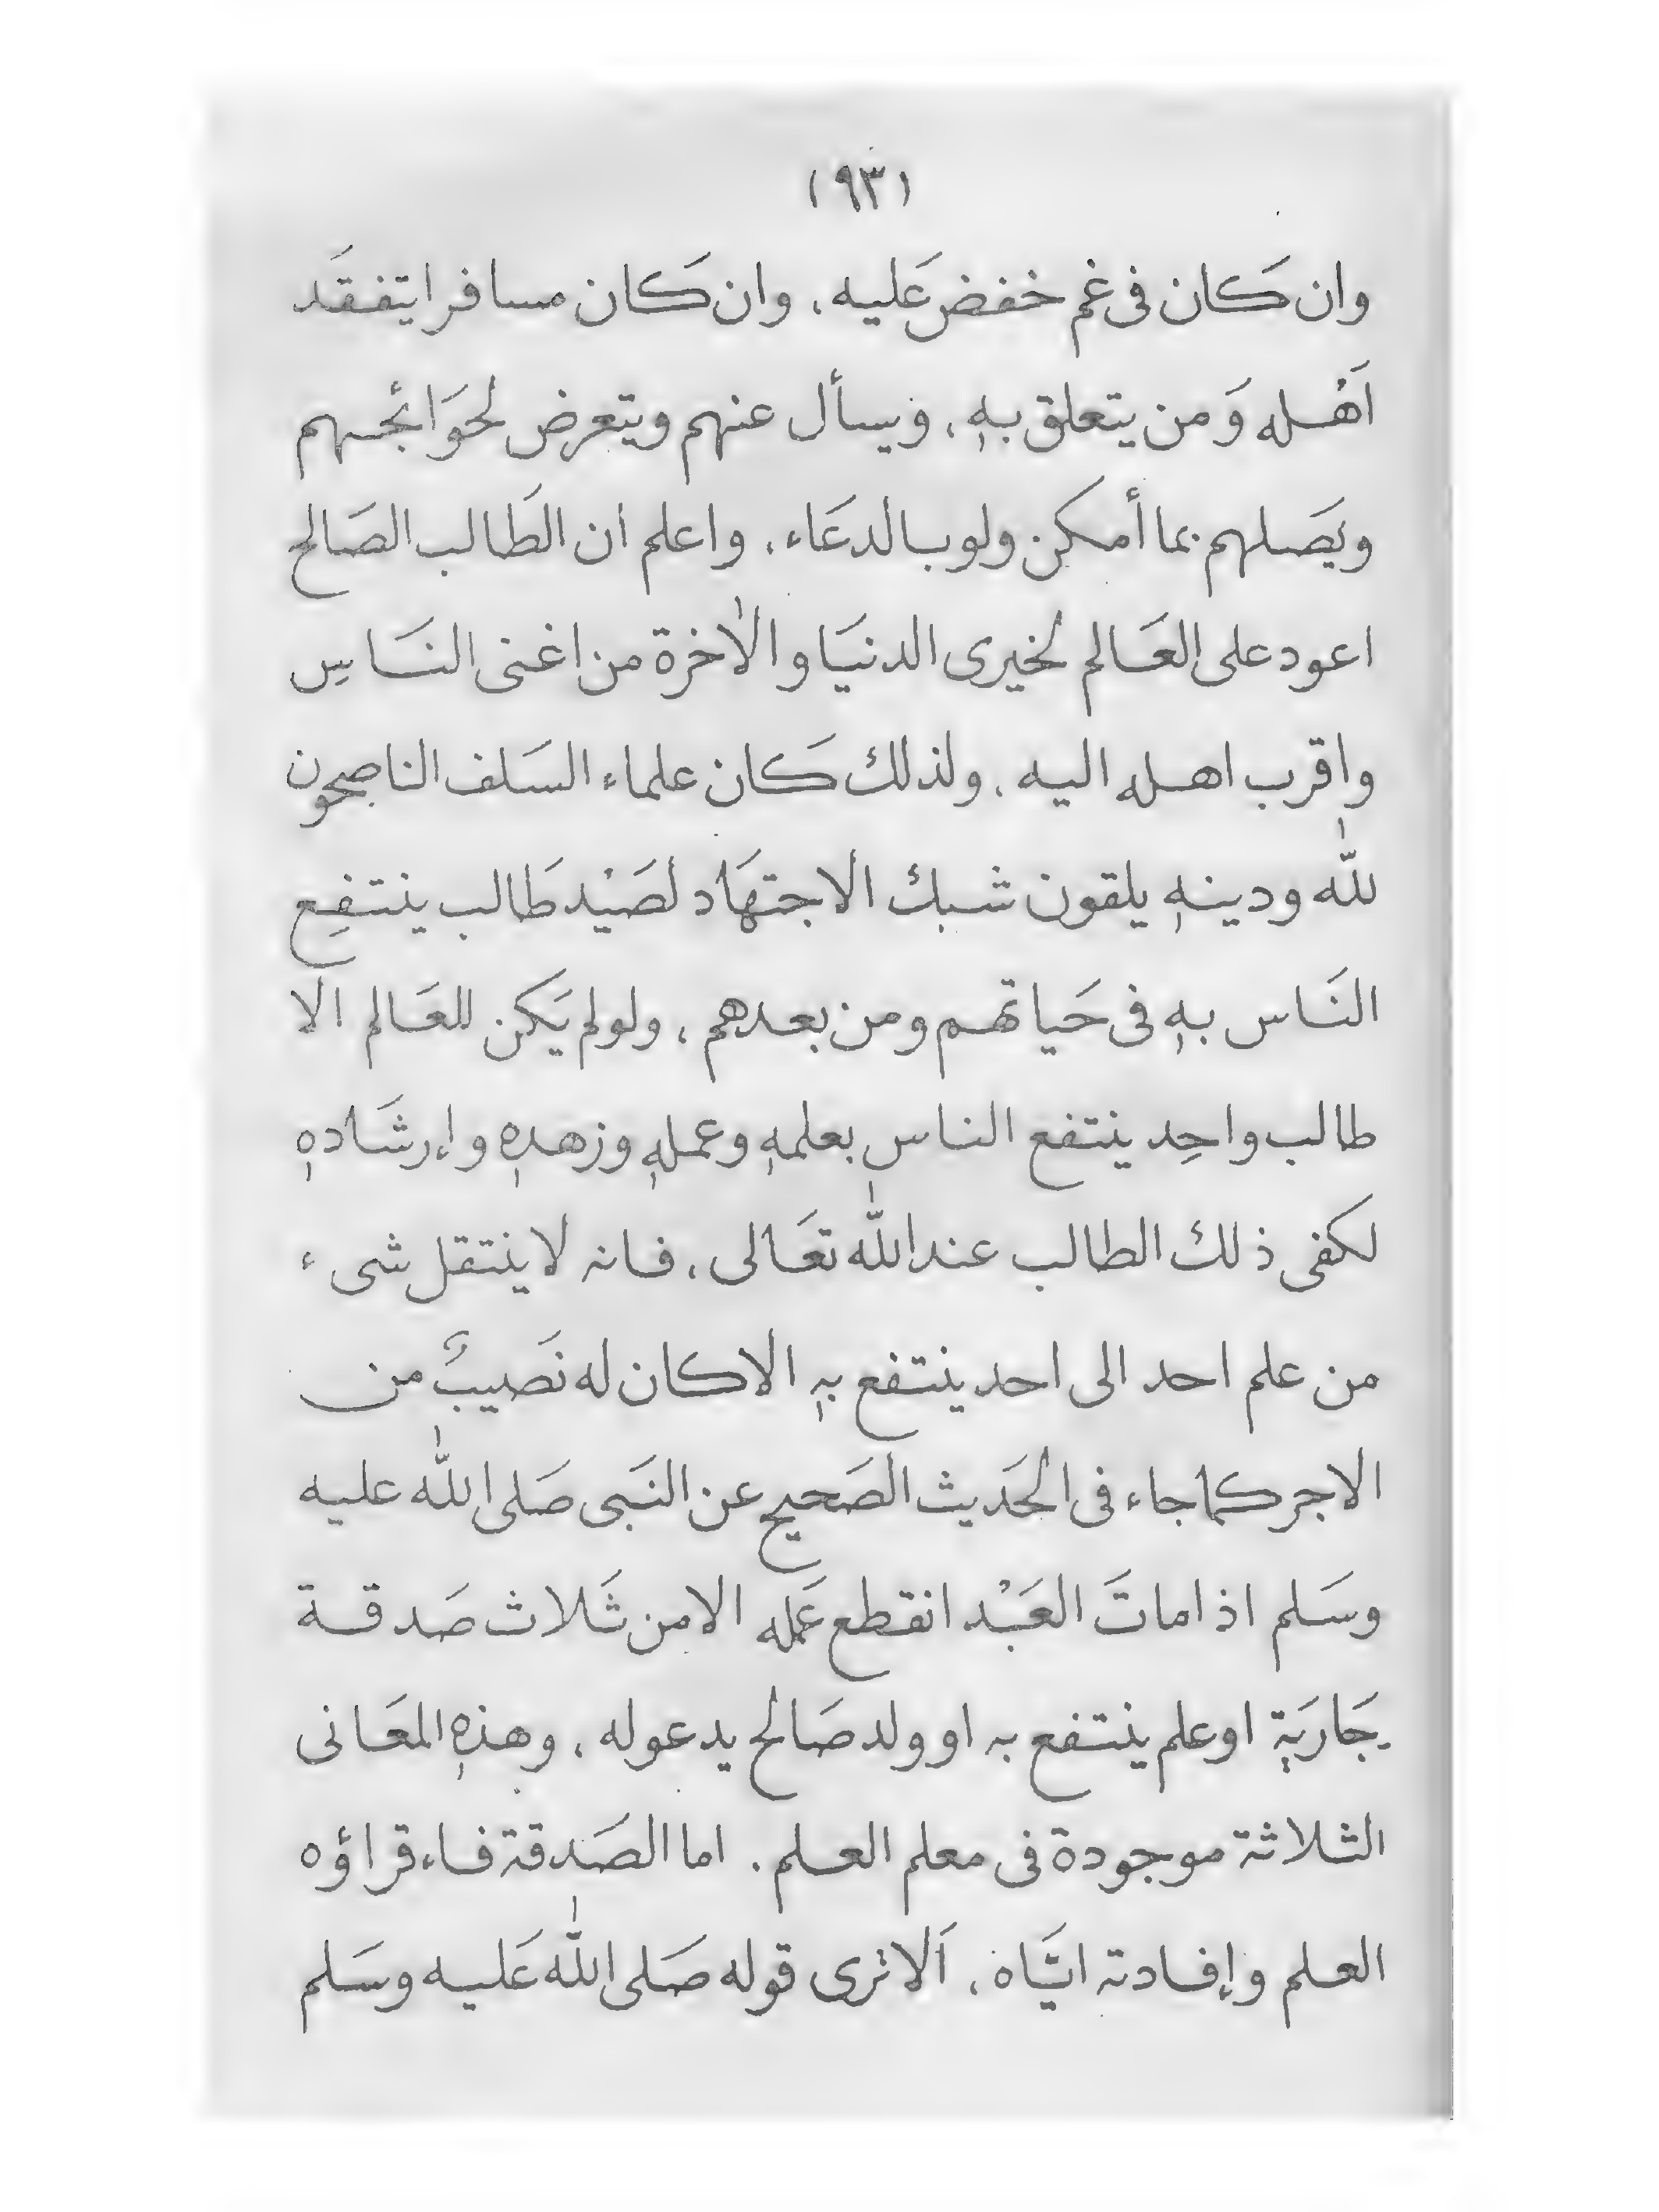 (٩٣)
وان كَان فى غم خفض عَليه، وان كَان مسافرا يتفقَد
اَهْله وَمن يتعلق بهٖ، ويسأل عنهم ويتعرض لحوَائجهم
ويَصَلهم بما أمكن ولو بالدعَاء، واعلم ان الطَالب الصَالح
اعود على العَالم لخيرى الدنيَا والاٰخرة من اغنى النَاسِ
واقرب اهله اليه، ولذلك كَان علماء السَلف الناصحون
للّٰه ودينهٖ يلقون شبك الاجتهَاد لصَيْد طَالب ينتفِع
النَاس بهٖ فى حَياتهم ومن بعدهم، ولو لم يَكن للعَالم الا
طالب واحِد ينتفع الناس بعلمهٖ وعملهٖ وزهدهٖ وإرشَادهٖ
لكفى ذلك الطالب عند اللّٰه تعَالى، فانه لا ينتقل شىء
من علم احد الى احد ينتفع بهٖ الا كان له نَصيبٌ من
الاجر كما جاء فى الحَديث الصَحيح عن النَبى صَلى اللّٰه عليه
وسَلم اذا ماتَ العَبْد انقطع عَمله الا من ثَلاث صَدقة
جَاريَةٍ او علم ينتفع به او ولد صَالح يدعوله، وهذهٖ المعَانى
الثلاثة موجودة فى معلم العلم. اما الصَدقة فاءقراؤه
العلم وإفادته ايَّاه، اَلا ترى قوله صَلى اللّٰه عَليه وسَلم